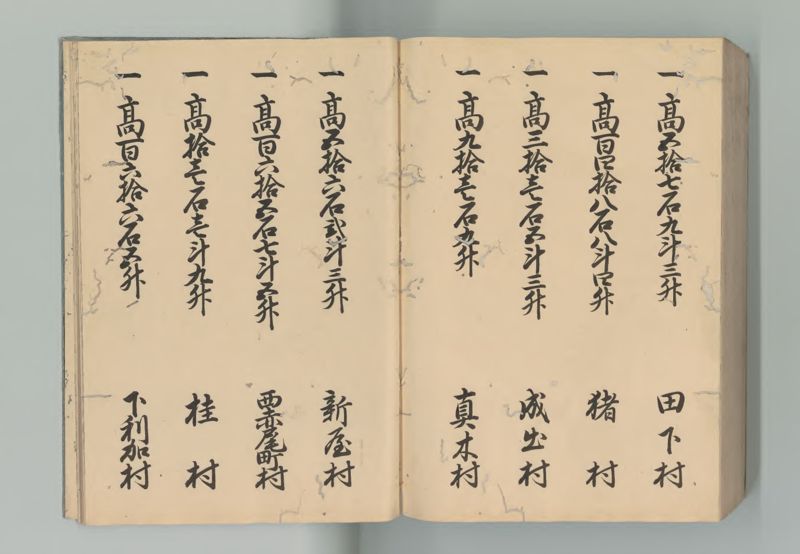 一 高五拾七石九斗三升 田下村
一 高百四拾八石八斗四升 猪村
一 高三拾壱石五斗三升 成出村
一 高九拾壱石九升 真木村
一 高五拾六石弐斗三升 新屋村
一 高百六拾五石七斗五升 西赤尾町村
一 高拾壱石壱斗九升 桂村
一 高百六拾六石五升 下利加村